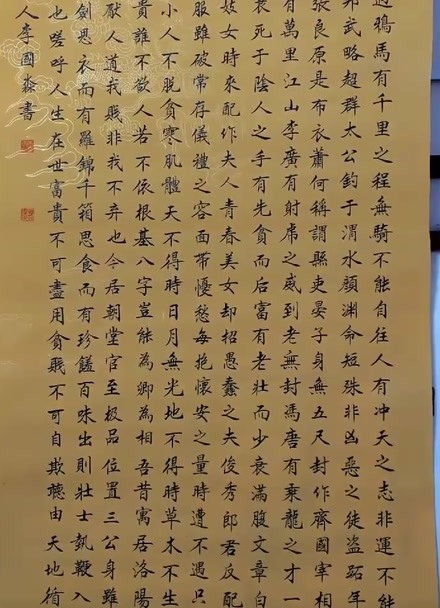 過鴉馬有千里之程無騎不能自往人有冲天之志非運不能
邦武略超群太公釣于渭水顏淵命短殊非凶惡之徒盜跖年
張良原是布衣蕭何稱謂縣吏晏子身無五尺封作齊國宰相
有萬里江山李廣有射虎之威到老無封馮唐有乘龍之才一
衰死于陰人之手有先貧而后富有老壯而少衰滿腹文章白
妓女時來配作夫人青春美女却招愚蠢之夫俊秀郎君反配
服雖破常存儀禮之容面帶懮愁每抱懷安之量時遭不遇只
小人不脫貧寒肌體天不得時日月無光地不得時草木不生
貴誰不欲人若不依根基八字豈能為卿為相吾昔寓居洛陽
厭人道我賤非我不弃也今居朝堂官至极品位置三公身雖
劍思衣而有羅錦千箱思食而有珍饈百味出則壯士執鞭入
也嗟呼人生在世富貴不可盡用貧賤不可自欺聽由天地循
人李國森書